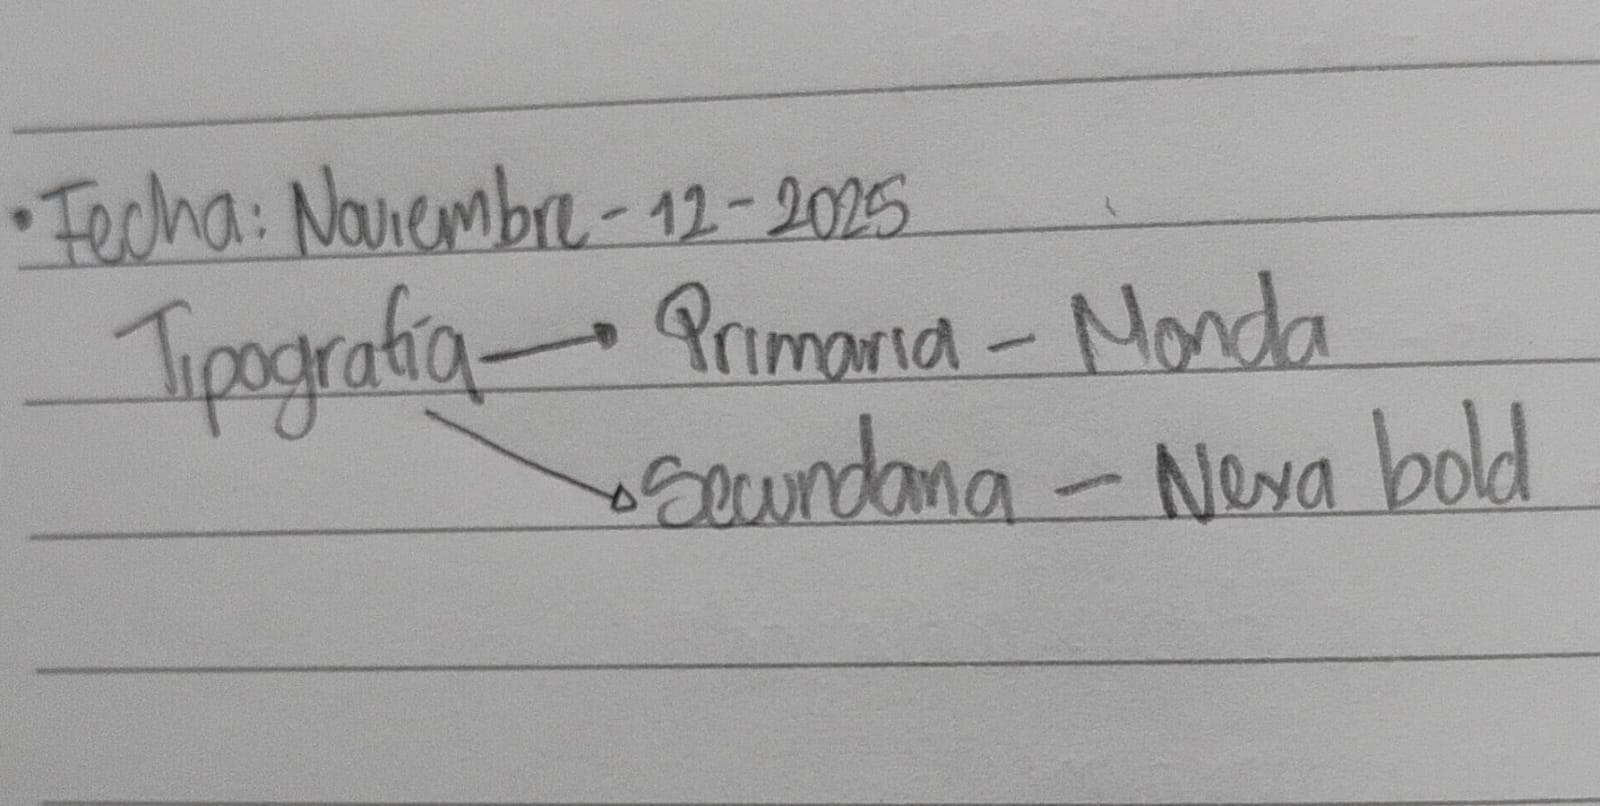 • Fecha: Noviembre - 12 - 2025
Tipografía → Primaria - Monda
→ Secundaria - Nexa bold